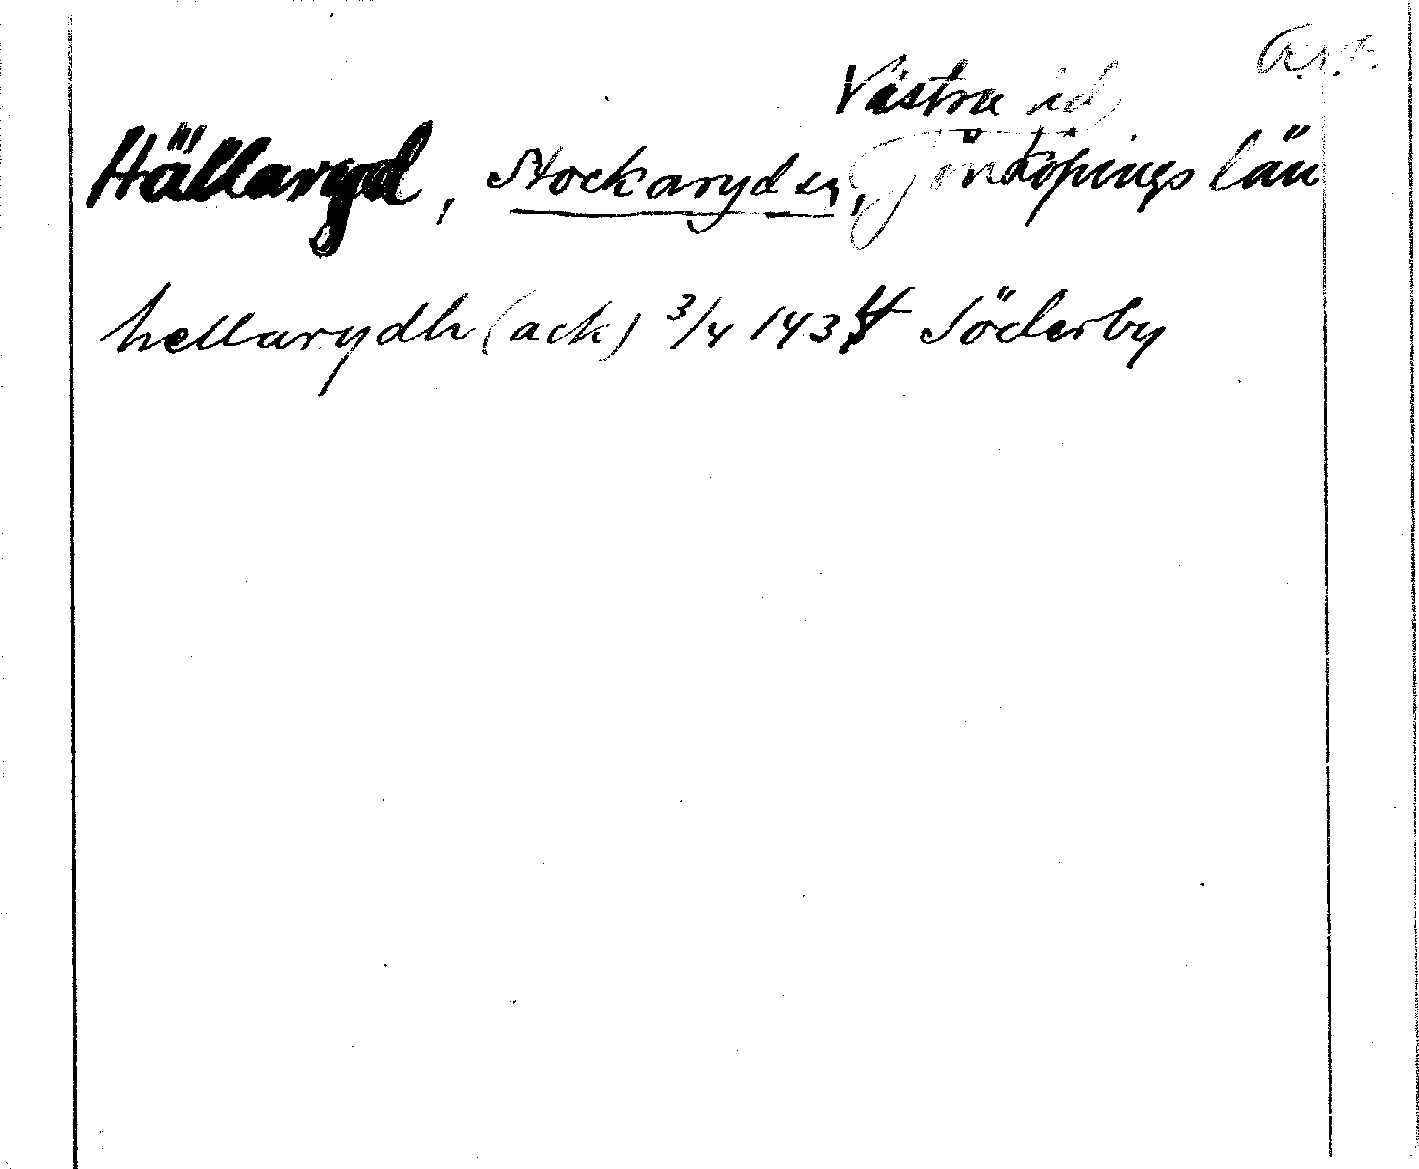 Västra hd
Hällaryd, Stockaryd sn, Jönköpings län
hellarydh (ack) 3/4 1434 Söderby